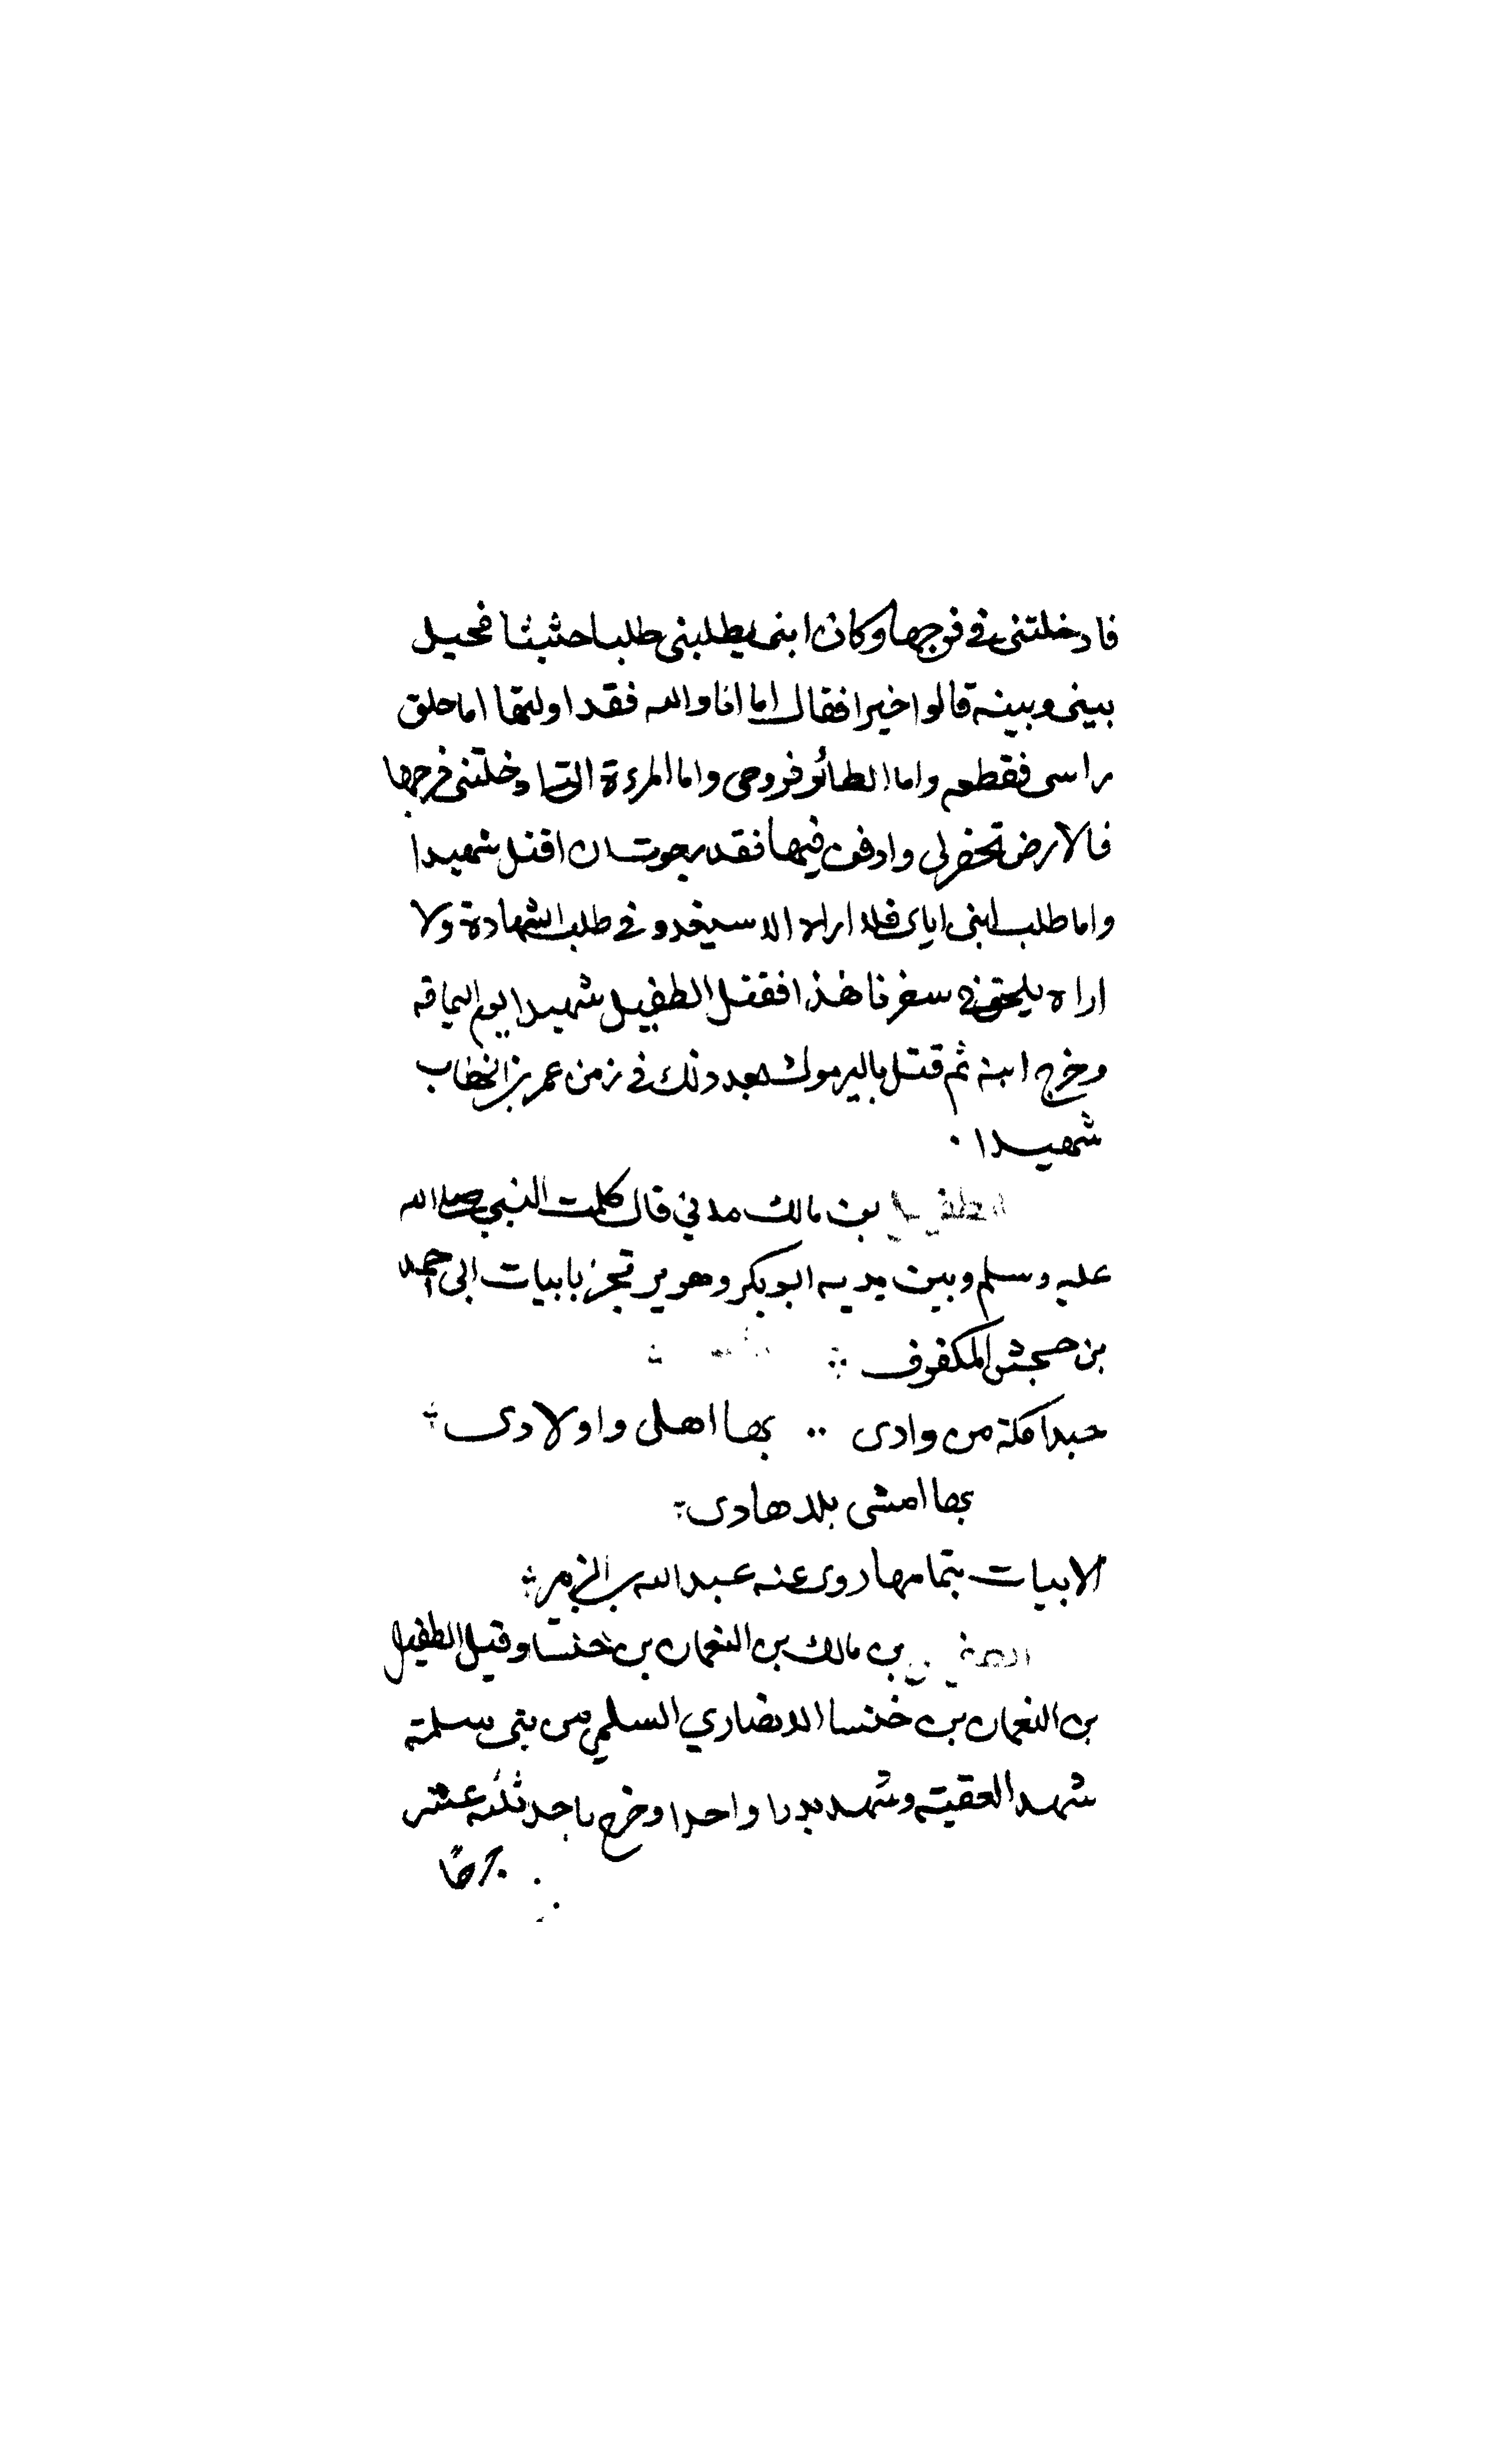 فادخلتني في فرجها وكان ابني يطلبني طلبا حثيثا فحيل
بيني وبينه قالوا خيرا فقال اما انا والله فقد اولتها اما حلق
راسي فقطعه واما الطائر فروحي واما المرءة التي ادخلتني فرجها
فالارض تحفر لي وادفن فيها فقد رجوت ان اقتل شهيدا
واما طلب ابني اياي فلا اراه الا سيغدو في طلب الشهادة ولا
اراه يلحق في سفرنا هذا فقتل الطفيل شهيدا يوم اليمامة
وخرج ابنه ثم قتل باليرموك بعد ذلك في زمن عمر بن الخطاب
شهيدا ٠
الطفيل بن مالك مدني قال كلمت النبي صلى الله
عليه وسلم وبين يديه ابو بكر وهو يرتجز بابيات ابى احمد
بن جحش المكفوف
حبذا مكة من وادى بها اهلى واولادى
بها امشى بلا هادى
الابيات بتمامها روى عنه عبد الله بن الزبير
الطفيل بن مالك بن النعمان بن خنسا وقيل الطفيل
بن النعمان بن خنسا الانصاري السلمي من بني سلمة
شهد العقبة وشهد بدرا واحدا وخرج باحد ثلثة عشر
جرحًا